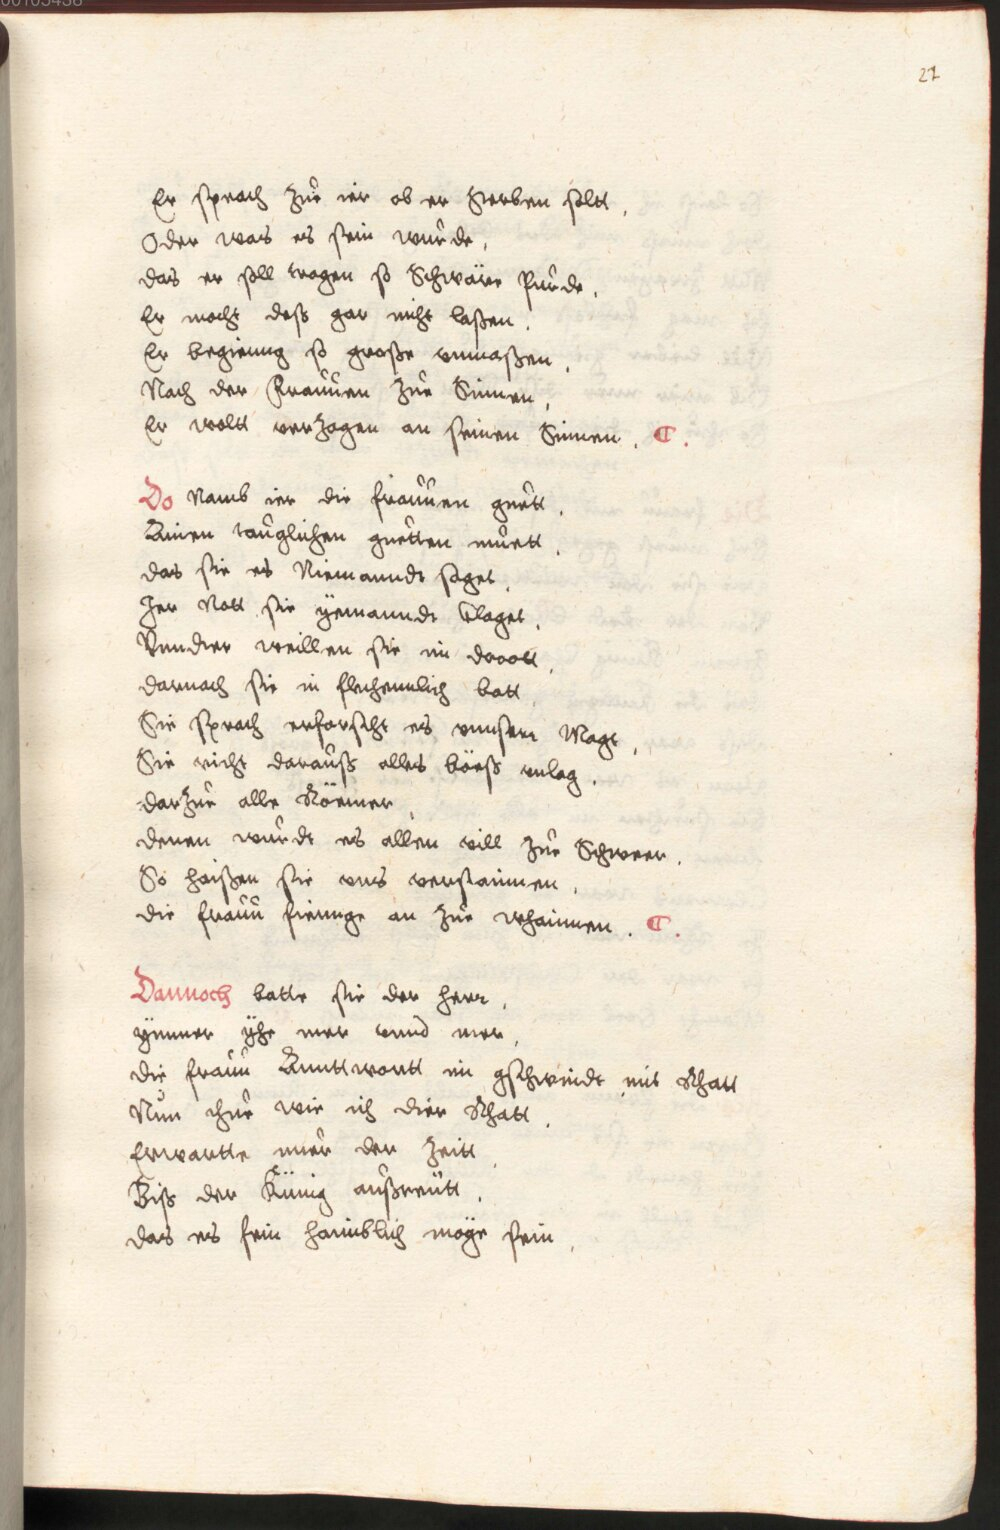 27
Er sprach zůr ier ob er Sterben soltt,
Oder was es sein wurde,
das er soll tragen so Schwäre Purde,
Er mocht dess gar nicht laßen,
Er begierung so große vnmaßen,
Nach der Frauuen zůr Sünnen,
Er woltt verzagen an seinen Sinnen. C.
Do Namb ier die frauuen guett,
Ainen tauglichen guetten muett,
das sie es Niemanndt saget,
Ier Nott sie yemanndt Claget,
Vnndter weillen sie im droott,
darnach sie in flechennlich batt,
Sie sprach erforscht es vnnsere Magt,
Sie richt darauß alles böess
darzue alle Römer,
denen wurdt es allen vill zůr Schweer,
So haißen sie vns verstainnen,
die frauu fieunge an zůr whainnen. C.
Dannoch batte sie der herr,
ymmer yhe mer vnnd mer,
die frauu Annttwortt im gschwindt mit Rhatt
Nun thue wie ich dier Rhatt,
Erwartte nuer der Zeitt,
Biß der Künig außreütt,
das es fein haimblich möge sein,